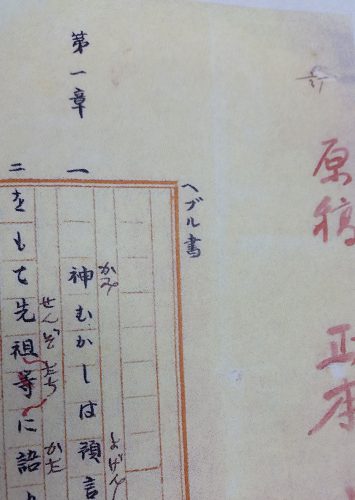 原稿 正本
ヘブル書
第一章
一
神むかしは預言
かみ
よげん
二
をもて先祖等に語
せんぞたち
かた